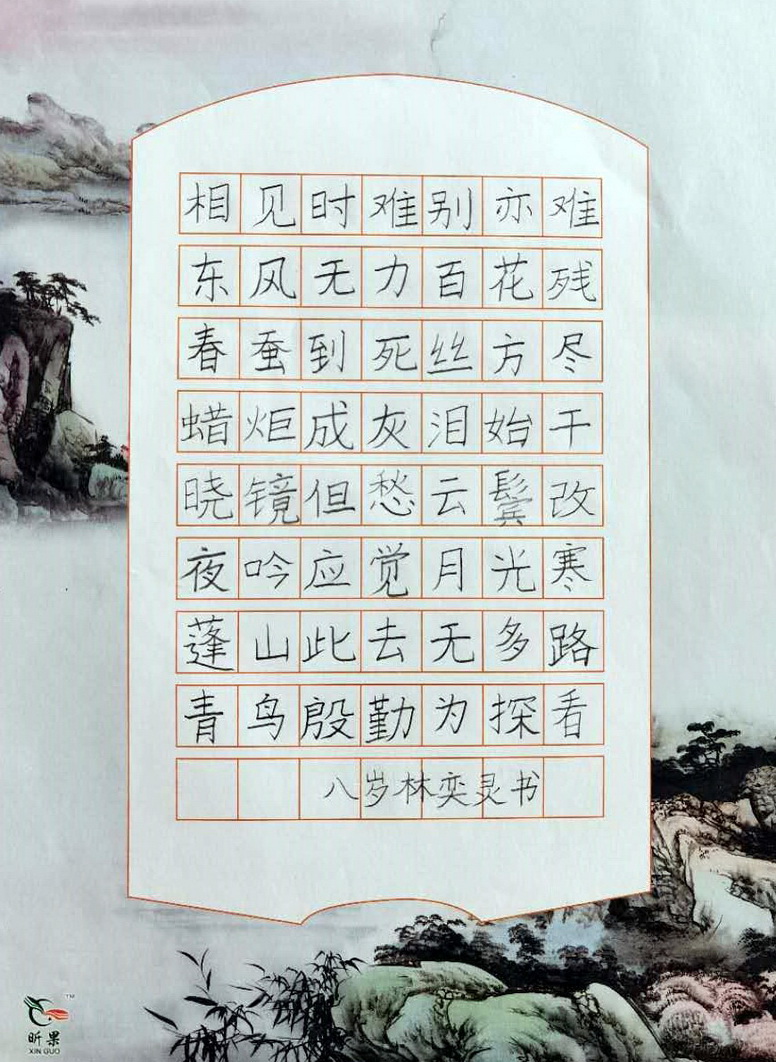 相见时难别亦难
东风无力百花残
春蚕到死丝方尽
蜡炬成灰泪始干
晓镜但愁云鬓改
夜吟应觉月光寒
蓬山此去无多路
青鸟殷勤为探看
八岁林奕灵书
TM
昕果
XIN GUO